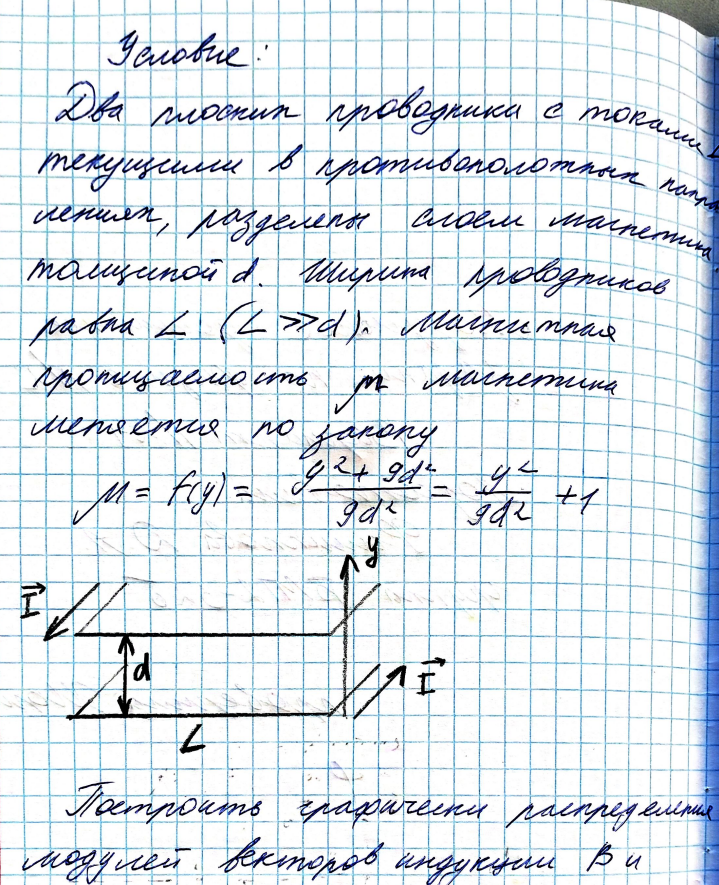 Условие:
Два плоских проводника с токами I
текущими в противоположных направ
лениях, разделены слоем магнетика
толщиной d. Ширина проводников
равна L (L >> d). Магнитная
проницаемость μ магнетика
меняется по закону
μ = f(y) = (y² + 9d²)/(9d²) = y²/(9d²) + 1
y
I
d
I
L
Построить графически распределения
модулей векторов индукции B и